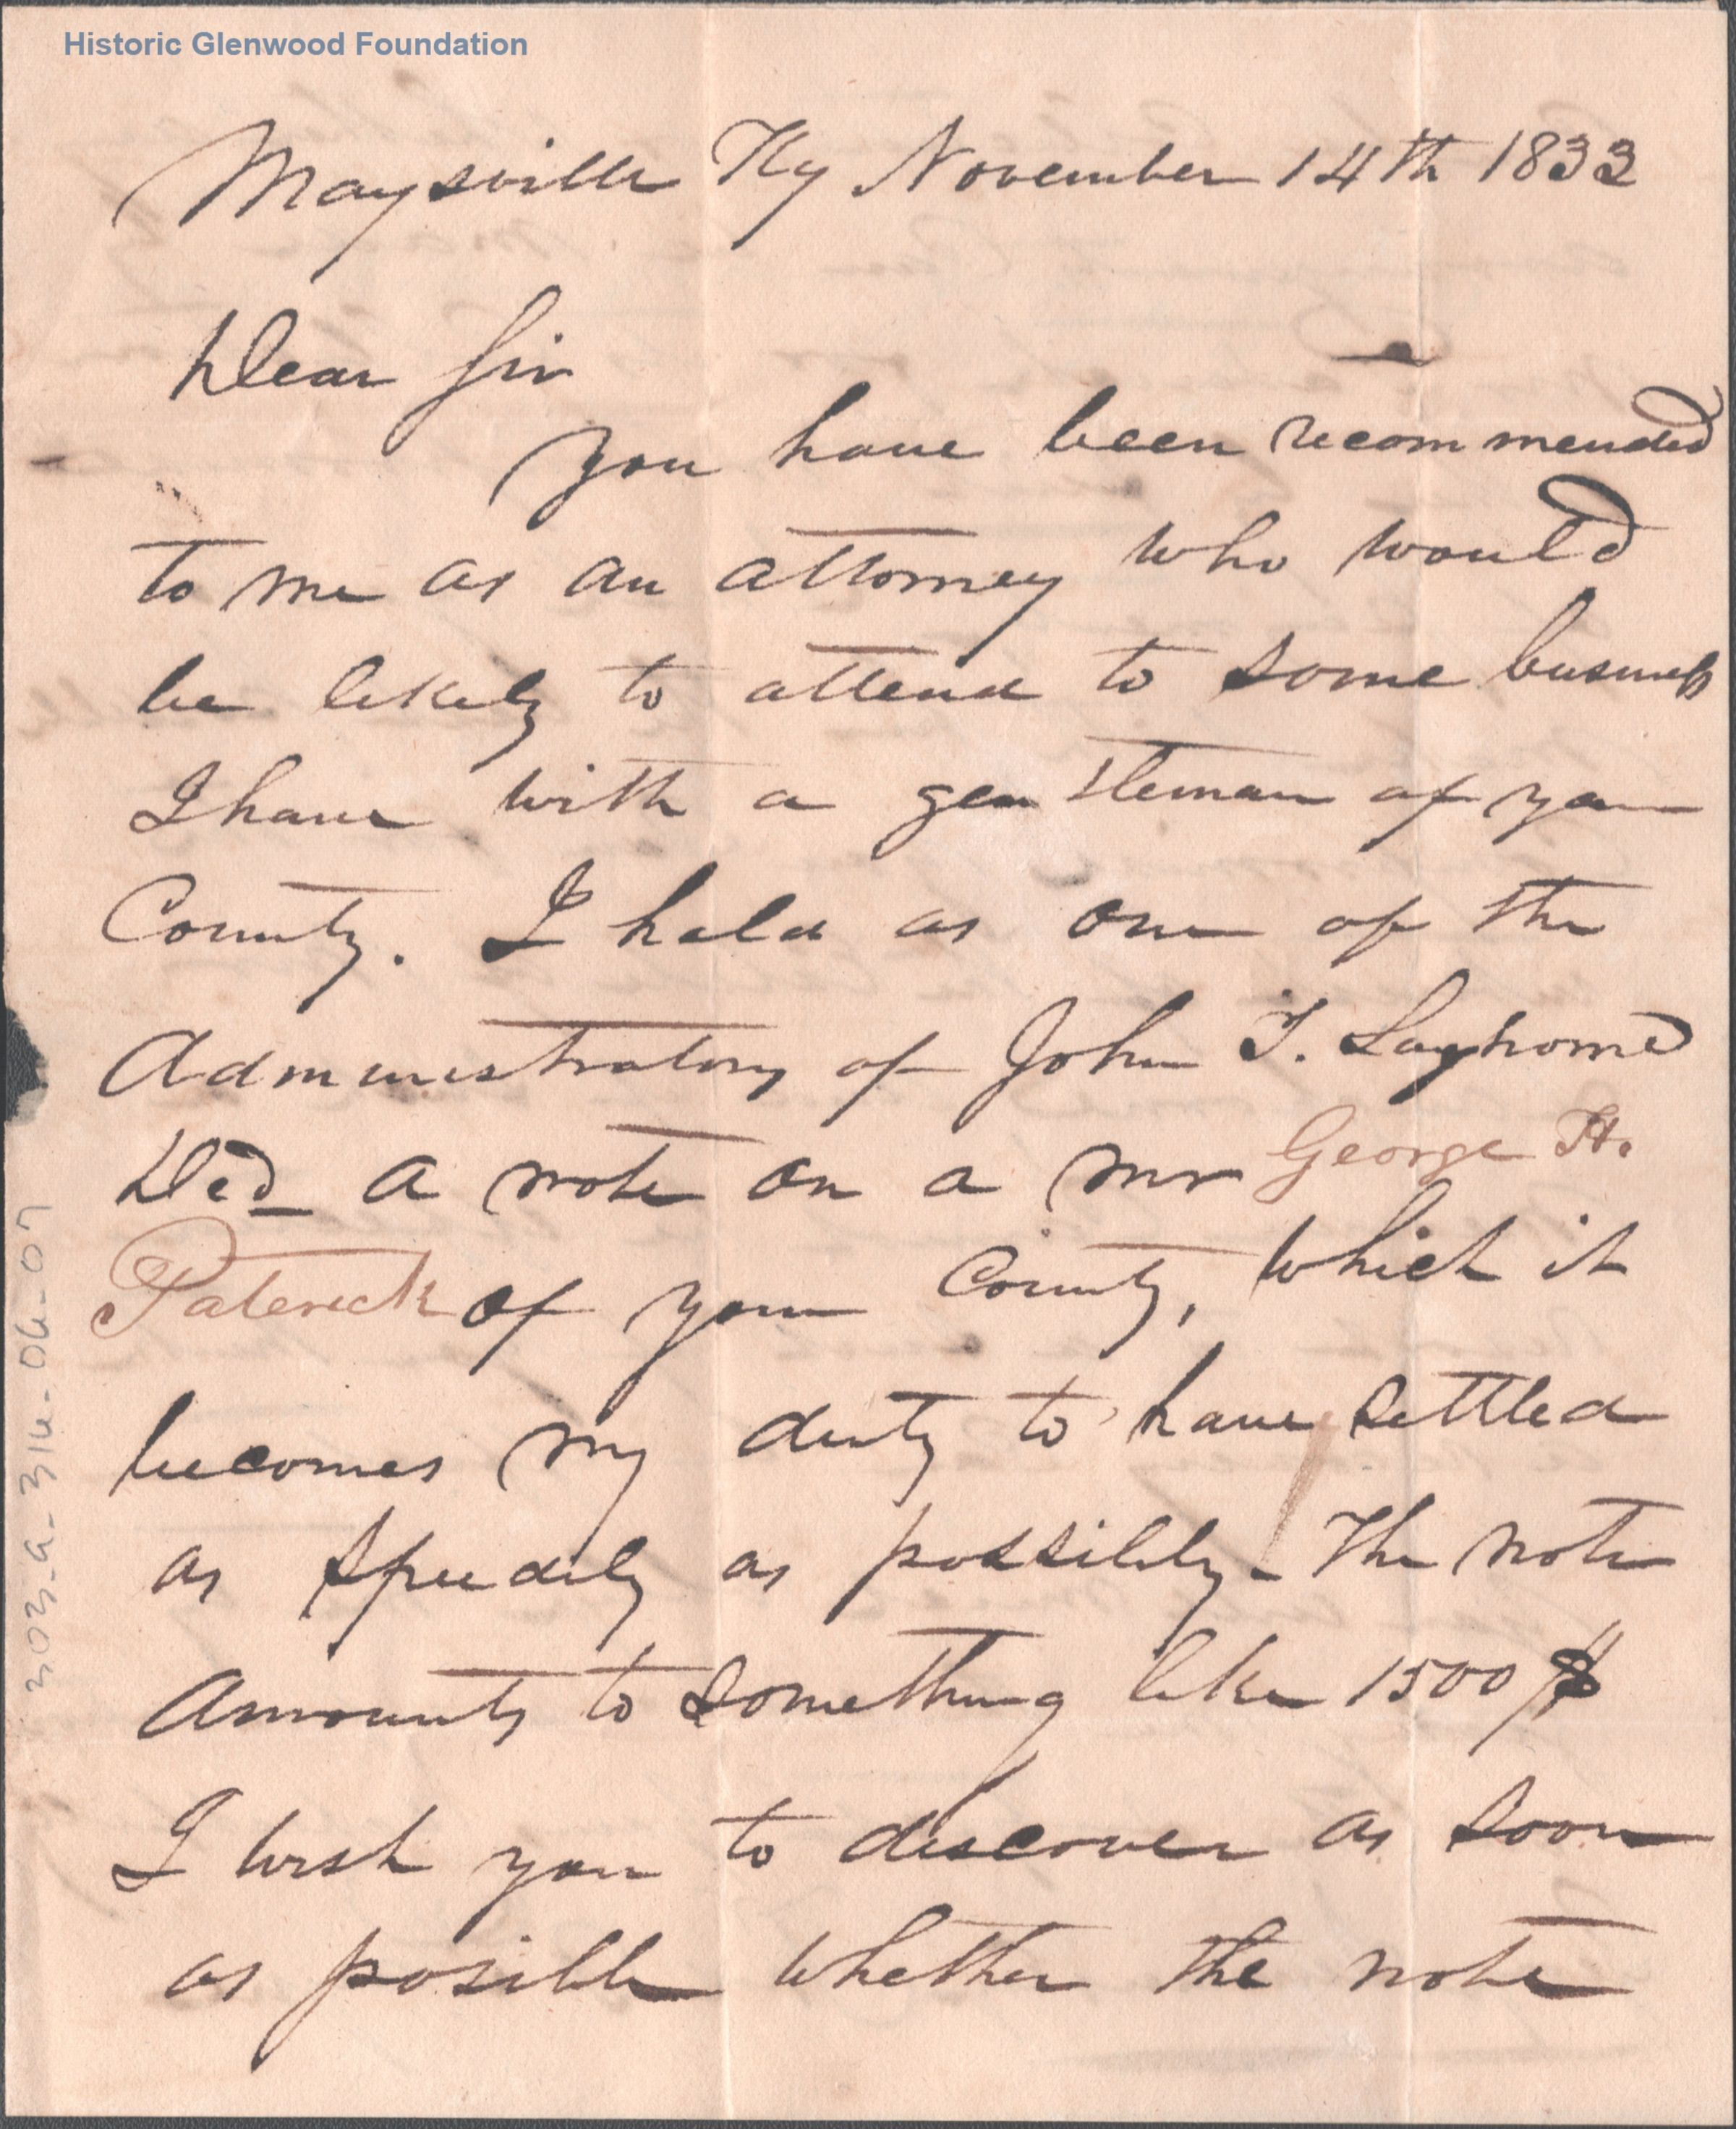 Historic Glenwood Foundation
Maysville Ky November 14th 1833
Dear Sir
You have been recommended
to me as an attorney who would
be likely to attend to some business
I have with a gentleman of your
County. I hold as one of the
Administrators of John T. Langhorne
Decd a note on a mr George H.
Paterick of your County, which it
becomes my duty to have settled
as speedily as possibly. The note
Amounts to something like 1500 $
I wish you to discover as soon
as posible whether the note
303-a-314-06-07